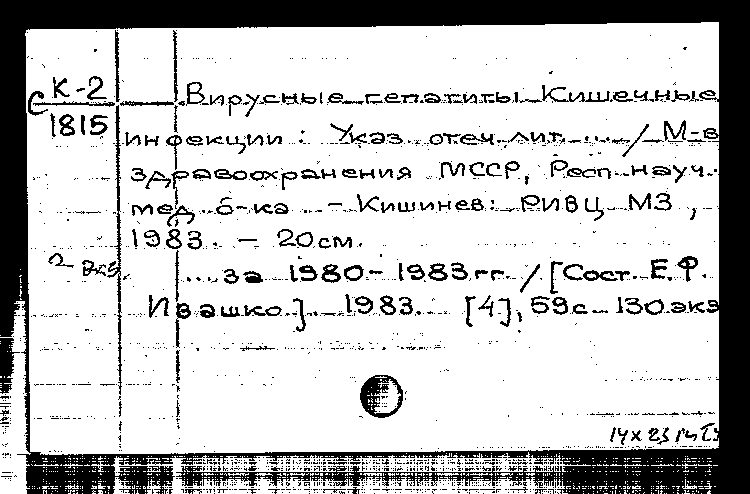 С К-2
1815
Вирусные гепатиты. Кишечные
инфекции : Указ. отеч. лит. ... / М-в
здравоохранения МССР, Респ. науч.
мед. б-ка. - Кишинев: РИВЦ МЗ,
1983. - 20см.
2 экз.
...за 1980-1983гг. / [Сост. Е.Ф.
Ивашко]. 1983. [4], 59с. 130экз
14х23